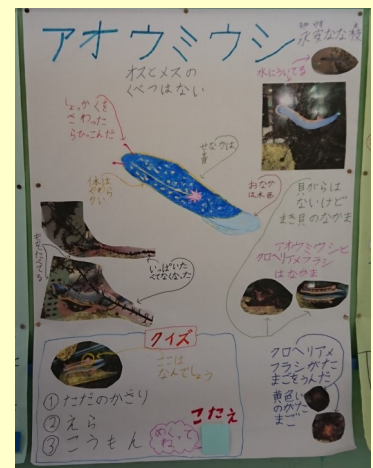 アオウミウシ
オスとメスの
くべつはない
水にういてる
しょっかくを
さわったら
ひっこんだ
せなかは
青
体はやわらかい
おなかは水色
貝がらは
ないけど
まき貝のなかま
アオウミウシと
クロヘリアメフラシ
はなかま
いっぱいいた
クイズ
ここは
なんでしょう
①ただのかざり
②えら
③こうもん
こたえ
めくってね
クロヘリアメ
フラシがたまごをうんだ
黄色い
のがた
まご